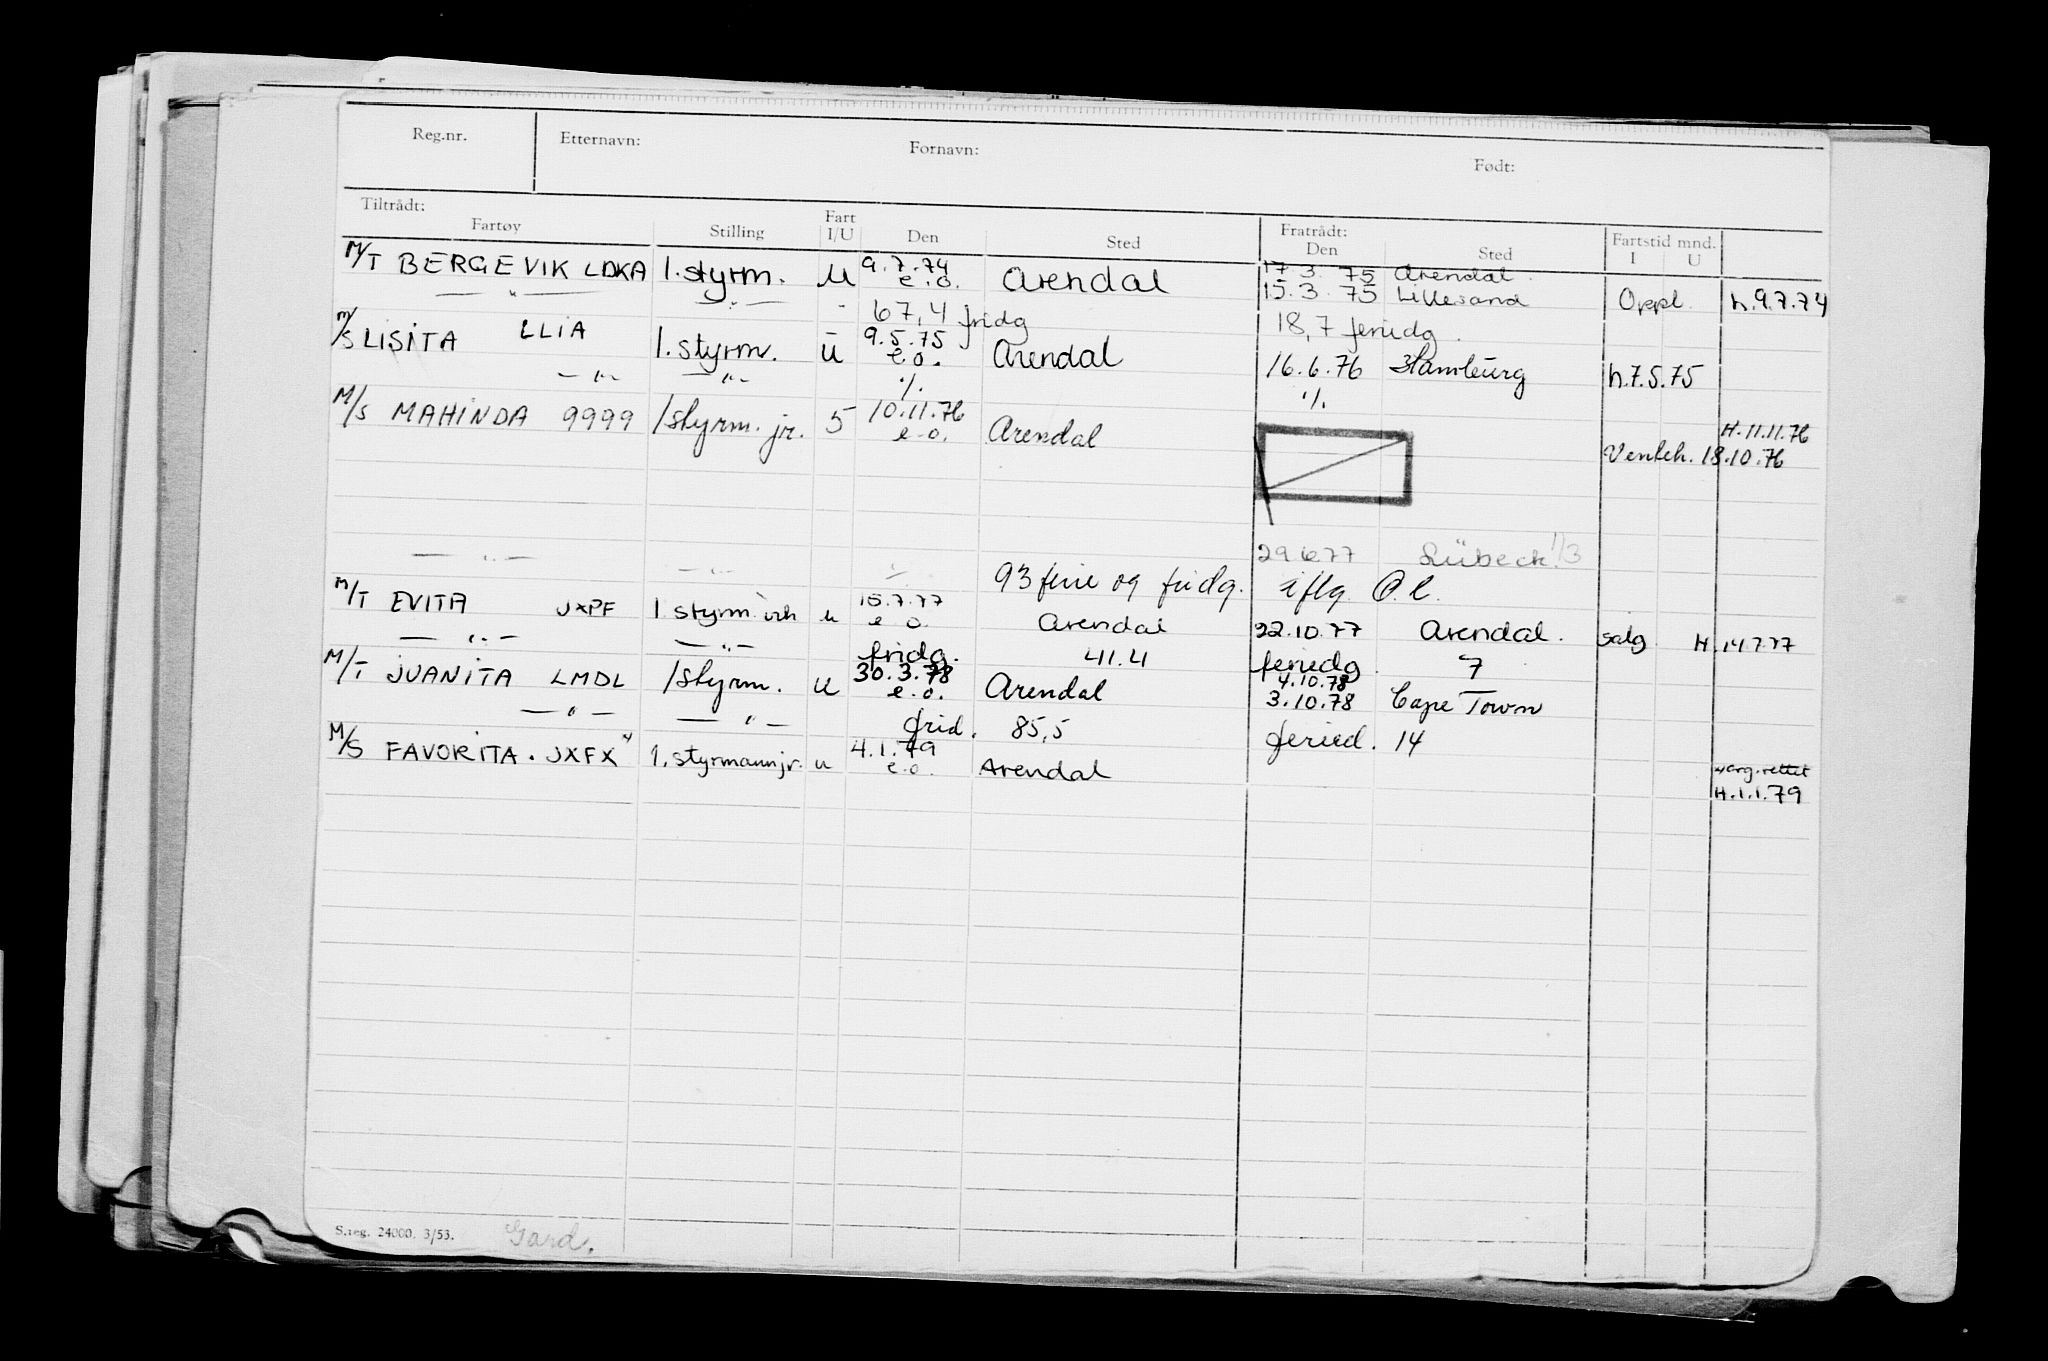 Reg.nr. Etternavn: Fornavn: Født:
Tiltrådt: Fratrådt:
Fartøy Stilling Fart I/U Den Sted Den Sted Fartstid mnd. I U
M/T BERGEVIK LDKA 1. styrm. u 9.7.74 e.o. Arendal 17.3.75 Arendal
— " — — " — - 15.3.75 Lillesand Oppl. h.9.7.74
67,4 fridg 18,7 feriedg.
M/S LISITA LLIA 1. styrm. u 9.5.75 e.o. Arendal 16.6.76 Hamburg h.7.5.75
— " — — " — ·/. ·/.
M/S MAHINDA 9999 1styrm. jr. 5 10.11.76 e.o. Arendal H.11.11.76
Venteh. 18.10.76
— " — — " — 29.6.77 Lübeck 1/3
93 ferie og fridg. iflg. O.l.
M/T EVITA JXPF 1. styrm. u 15.7.77 e.o. Arendal 22.10.77 Arendal. salg H.14.7.77
— " — — " — fridg. 41.4 feriedg. 7
M/T JUANITA LMDL 1styrm. u 30.3.78 e.o. Arendal 4.10.78
3.10.78 Cape Town
— " — — " — frid. 85,5 feried. 14
M/S FAVORITA. JXFX 1. styrmann jr. u 4.1.79 e.o. Arendal
rettet
H.1.1.79
S.reg. 24000. 3/53. Gard.